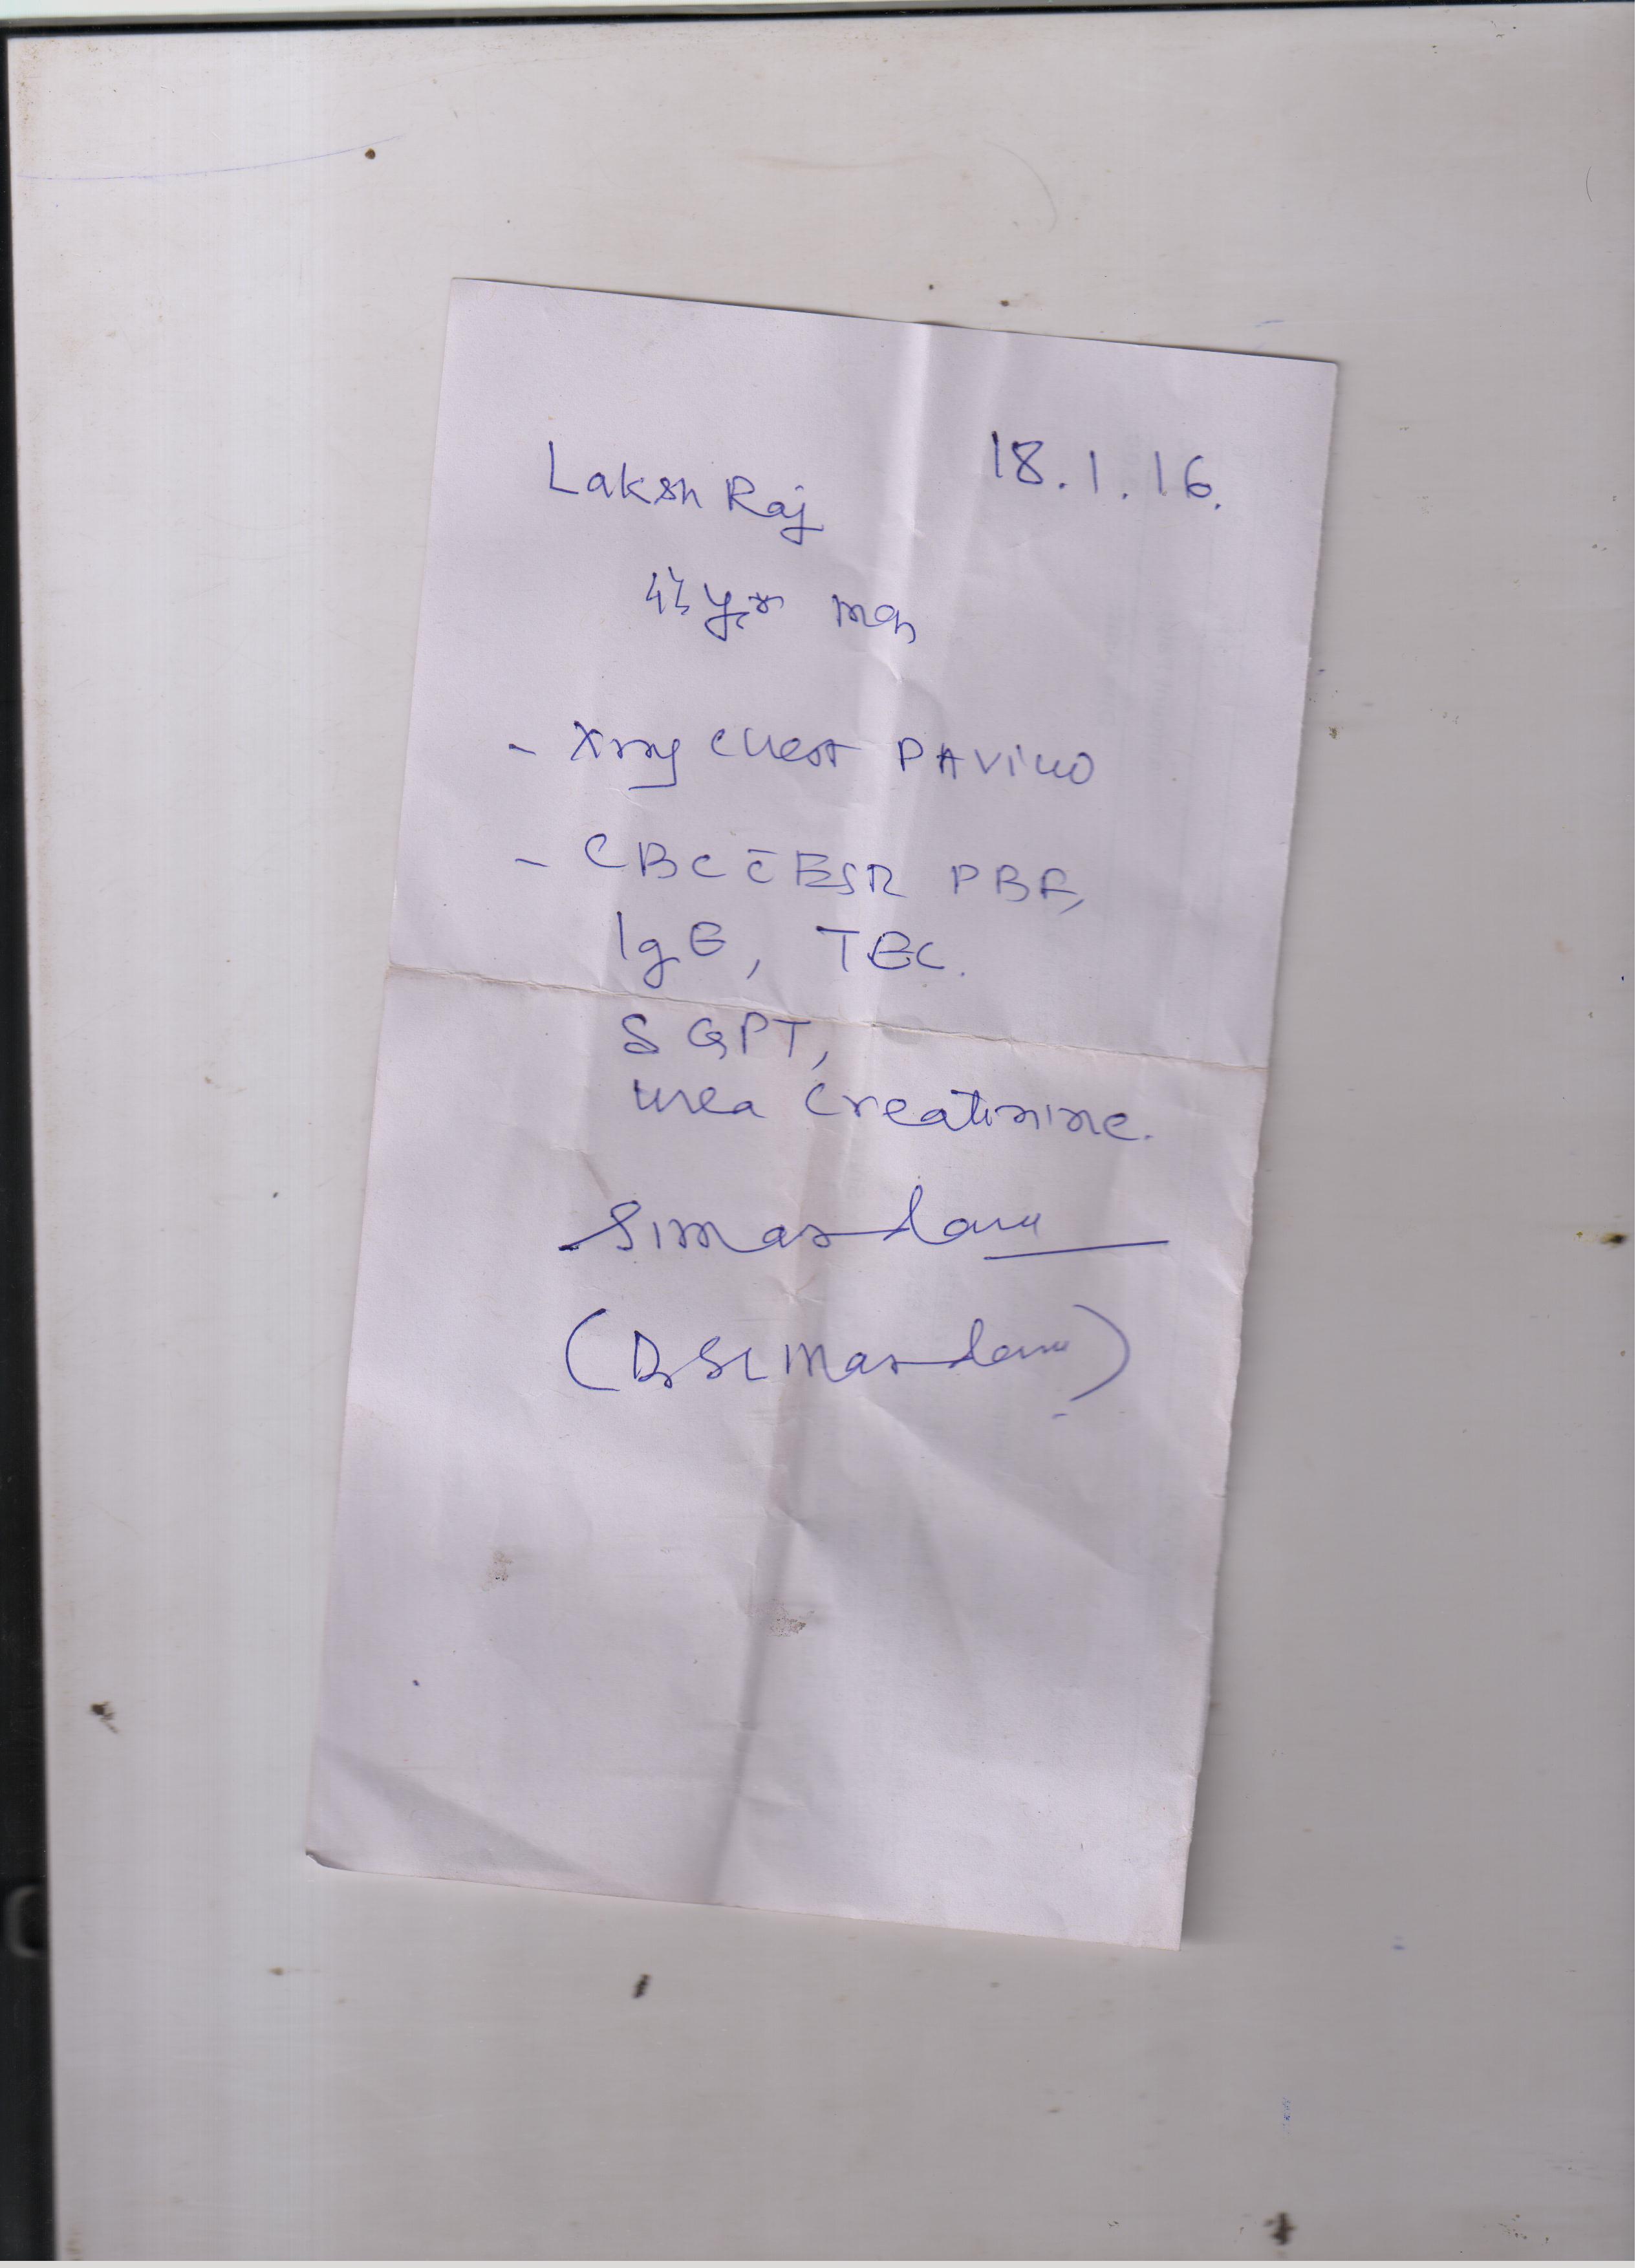 Laksh Raj 18.1.16.
yr man
- Xray Chest PA View
- CBC c̄ ESR PBF,
IgE, TEC.
SGPT,
urea Creatinine.
Simar
(Dr Simar